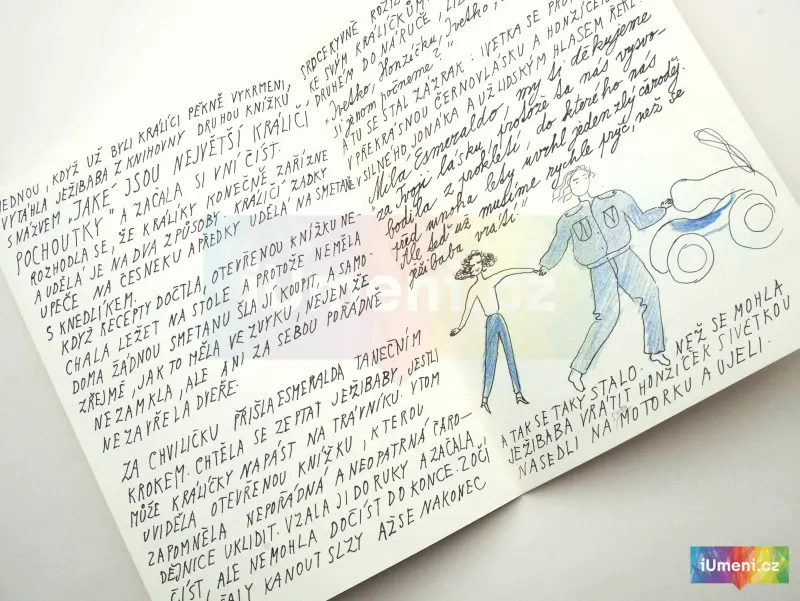 JEDNOU, KDYŽ UŽ BYLI KRÁLÍCI PĚKNĚ VYKRMENI,
VYTÁHLA JEŽIBABA Z KNIHOVNY DRUHOU KNÍŽKU
S NÁZVEM „JAKÉ JSOU NEJVĚTŠÍ KRÁLIČÍ
POCHOUTKY" A ZAČALA SI V NÍ ČÍST.
ROZHODLA SE, ŽE KRÁLÍKY KONEČNĚ ZAŘÍZNE
A UDĚLÁ JE NA DVA ZPŮSOBY. KRÁLIČÍ ZADKY
UPEČE NA ČESNEKU A PŘEDKY UDĚLÁ NA SMETANĚ
S KNEDLÍKEM.
KDYŽ RECEPTY DOČTLA, OTEVŘENOU KNÍŽKU NE-
CHALA LEŽET NA STOLE A PROTOŽE NEMĚLA
DOMA ŽÁDNOU SMETANU ŠLA JI KOUPIT, A SAMO-
ZŘEJMĚ, JAK TO MĚLA VE ZVYKU, NEJEN ŽE
NEZAMKLA, ALE ANI ZA SEBOU POŘÁDNĚ
NEZAVŘELA DVEŘE.
ZA CHVILIČKU PŘIŠLA ESMERALDA TANEČNÍM
KROKEM. CHTĚLA SE ZEPTAT JEŽIBABY, JESTLI
MŮŽE KRÁLÍČKY NAPÁST NA TRÁVNÍKU. VTOM
UVIDĚLA OTEVŘENOU KNÍŽKU, KTEROU
ZAPOMNĚLA NEPOŘÁDNÁ A NEOPATRNÁ ČARO-
DĚJNICE UKLIDIT. VZALA JI DO RUKY A ZAČALA
ČÍST, ALE NEMOHLA DOČÍST DO KONCE. Z OČÍ
KANOUT SLZY AŽ SE NAKONEC
SRDCERYVNĚ
KE SVÝM KRÁLÍČKŮM
DRUHÉM DO NÁRUČE,
„Ivetko, Honzíčku, Ivetko,
si jenom počneme?"
A TU SE STAL ZÁZRAK: IVETKA SE
V PŘEKRÁSNOU ČERNOVLÁSKU A HONZÍČEK
V SILNÉHO JONÁKA A UŽ LIDSKÝM HLASEM ŘEKL
Milá Esmeraldo, my ti děkujeme
za Tvoji lásku, protože ta nás vysvo-
bodila z prokletí, do kterého nás
před mnoha lety uvrhl jeden zlý čaroděj.
Ale teď už musíme rychle pryč, než se
ježibaba vrátí."
A TAK SE TAKY STALO. NEŽ SE MOHLA
JEŽIBABA VRÁTIT HONZÍČEK S IVETKOU
NASEDLI NA MOTORKU A UJELI.
iUmeni.cz
iUmeni.cz